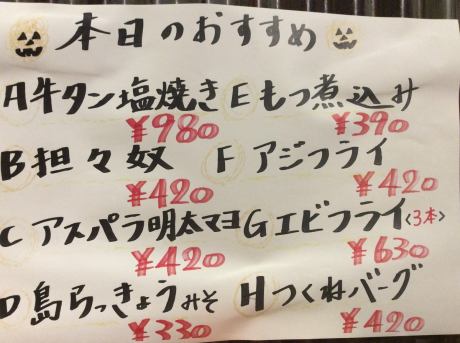 本日のおすすめ
A牛タン塩焼き
¥980
B担々奴
¥420
Cアスパラ明太マヨ
¥420
D島らっきょうみそ
¥330
Eもつ煮込み
¥390
Fアジフライ
¥420
Gエビフライ<3本>
¥630
Hつくねバーグ
¥420